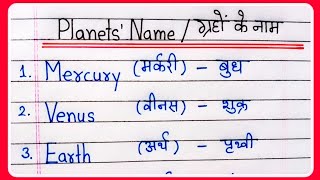 Planets' Name / ग्रहों के नाम
1. Mercury (मर्करी) - बुध
2. Venus (वीनस) - शुक्र
3. Earth (अर्थ) - पृथ्वी